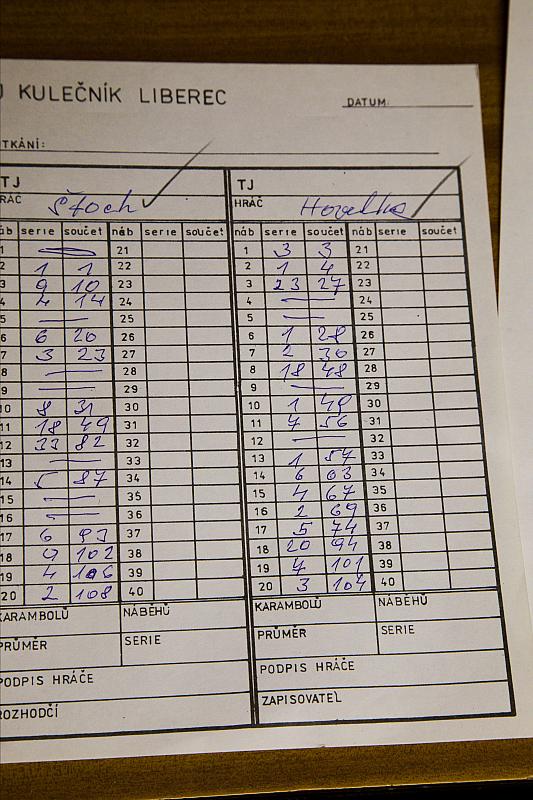 KULEČNÍK LIBEREC
DATUM:
TKÁNÍ:
TJ TJ
RÁČ Štoch HRÁČ
náb serie součet náb serie součet náb serie součet náb serie součet
1 — 21 1 3 3 21
2 1 1 22 2 1 4 22
3 9 10 23 3 23 27 23
4 4 14 24 4 — 24
5 — 25 5 — 25
6 6 20 26 6 1 28 26
7 3 23 27 7 2 30 27
8 — 28 8 18 48 28
9 — 29 9 — 29
10 8 31 30 10 1 49 30
11 18 49 31 11 7 56 31
12 33 82 32 12 — 32
13 — 33 13 1 57 33
14 5 87 34 14 6 63 34
15 — 35 15 4 67 35
16 — 36 16 2 69 36
17 6 93 37 17 5 74 37
18 9 102 38 18 20 94 38
19 4 106 39 19 7 101 39
20 2 108 40 20 3 104 40
KARAMBOLŮ NÁBĚHŮ KARAMBOLŮ NÁBĚHŮ
PRŮMĚR SERIE PRŮMĚR SERIE
PODPIS HRÁČE PODPIS HRÁČE
ROZHODČÍ ZAPISOVATEL